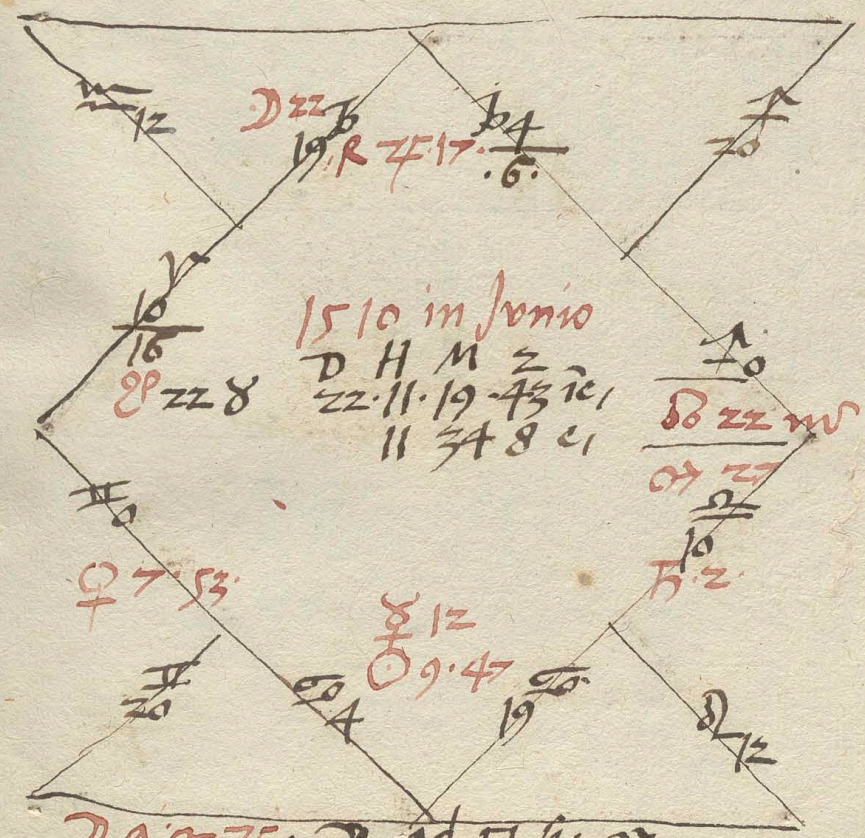 ♒ 12
☽ 22
♑ 19
℞ ♃ 17
♑ 4
.6.
♐ 20
♈
10
16
☋ 22 ♉
1510 in Junio
D H M 2
22. 11. 19. 43
11 34 8
♐ 0
☊ 22 ♏
♂ 27
♎
10
♄ . 2 .
♊ 0
♀ 7 . 53
☿ 12
☉ 9 . 47
♊
20
♋ 4
♋
19
♌ 12